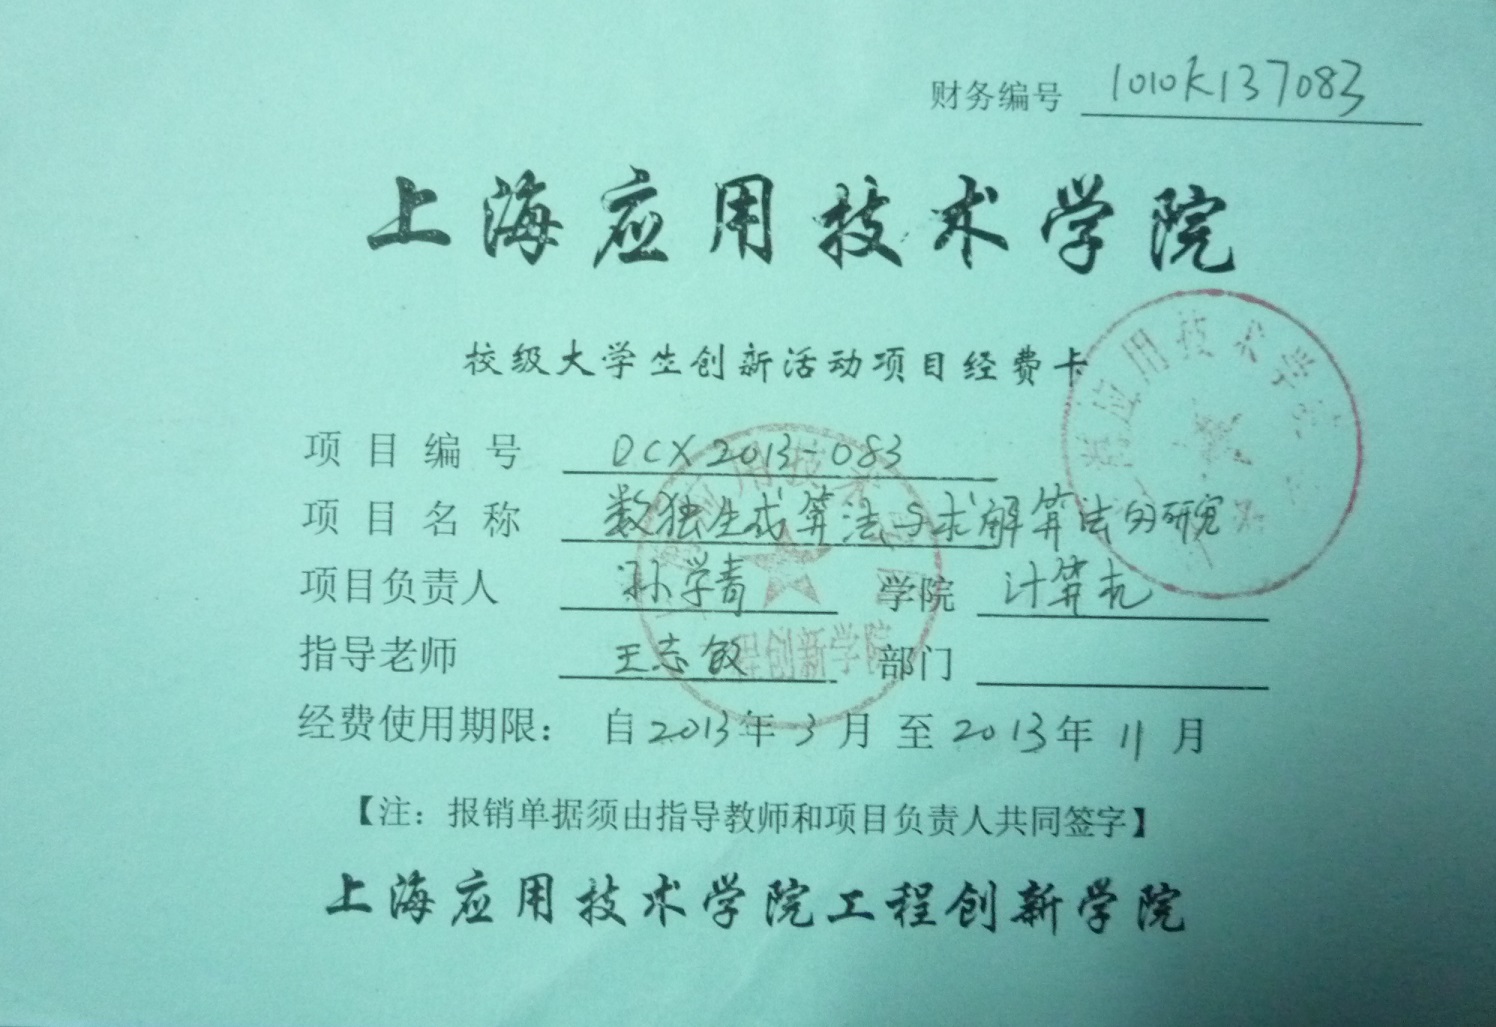 财务编号 1010K137083
上海应用技术学院
校级大学生创新活动项目经费卡
项目编号 DCX2013-083
项目名称 数独生成算法与求解算法的研究
项目负责人 孙学青 学院 计算机
指导老师 王志敏 部门
经费使用期限： 自2013年3月 至2013年11月
【注：报销单据须由指导教师和项目负责人共同签字】
上海应用技术学院工程创新学院
应用技术学
用技术
程创新学院